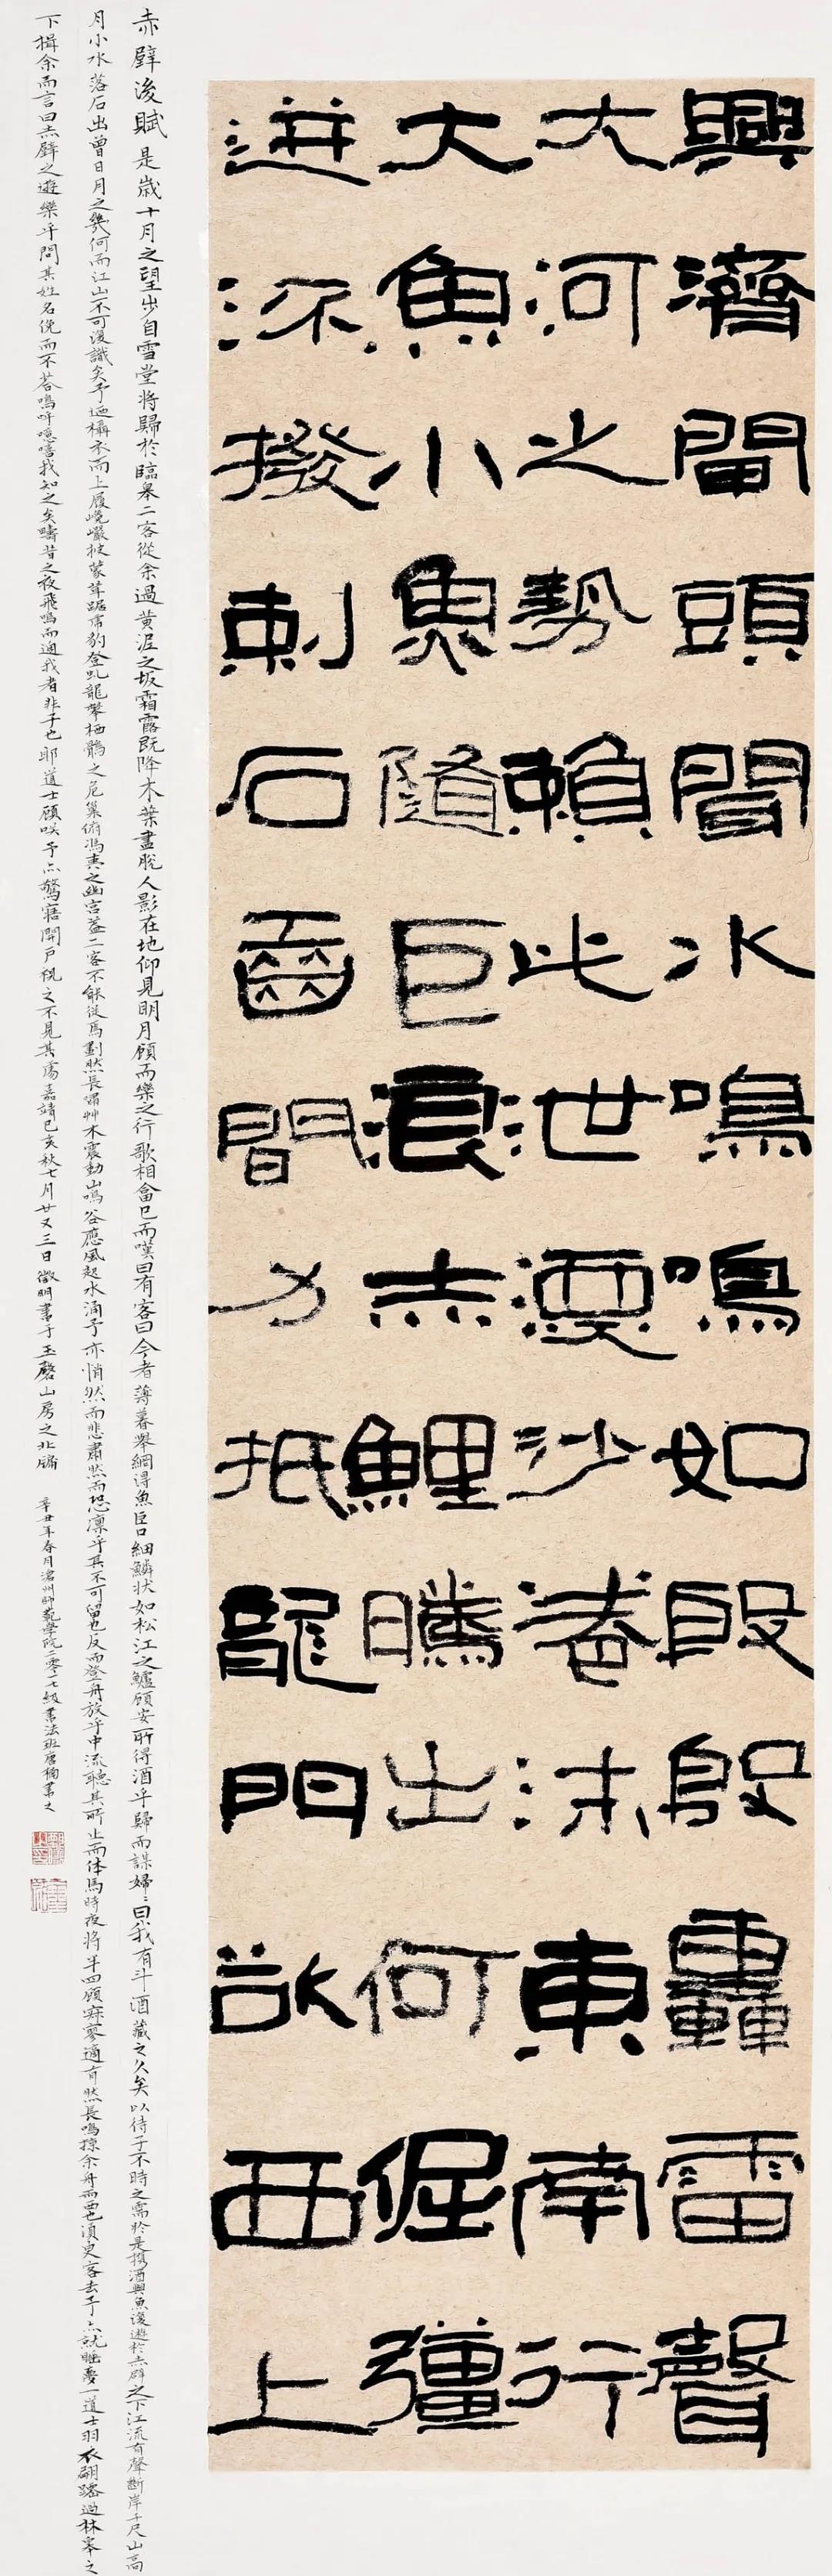 興濟閘頭聞水鳴鳴如殷殷轟雷聲
大河之勢賴此泄沙卷沫東南行
大魚小魚隨巨浪赤鯉騰出何倔彊
迸深撥刺石齒間力抵龍門欲西上
赤壁後賦 是歲十月之望步自雪堂將歸於臨皋二客從余過黃泥之坂霜露既降木葉盡脫人影在地仰見明月顧而樂之行歌相畣已而嘆曰有客曰今者薄暮舉網得魚巨口細鱗狀如松江之鱸顧安所得酒乎歸而謀婦〻曰我有斗酒藏之久矣以待子不時之需於是攜酒與魚復遊於赤壁之下江流有聲斷岸千尺山高
月小水落石出曾日月之幾何而江山不可復識矣予迺攝衣而上履巉巖披蒙茸踞虎豹登虬龍攀栖鶻之危巢俯馮夷之幽宮蓋二客不能從焉劃然長嘯艸木震動山鳴谷應風起水涌予亦悄然而悲肅然而恐凜乎其不可留也反而登舟放乎中流聽其所止而休焉時夜將半四顧寂寥適有然長鳴掠余舟而西也須臾客去予亦就睡夢一道士羽衣翩躚過林皋之
下揖余而言曰赤壁之遊樂乎問其姓名俛而不荅嗚呼噫嘻我知之矣疇昔之夜飛鳴而過我者非子也耶道士顧咲予亦驚寤開戶視之不見其處嘉靖己亥秋七月廿又三日徵明書于玉磬山房之北牖 辛丑年春月滄州師範學院二零一七級書法班唐楠書之